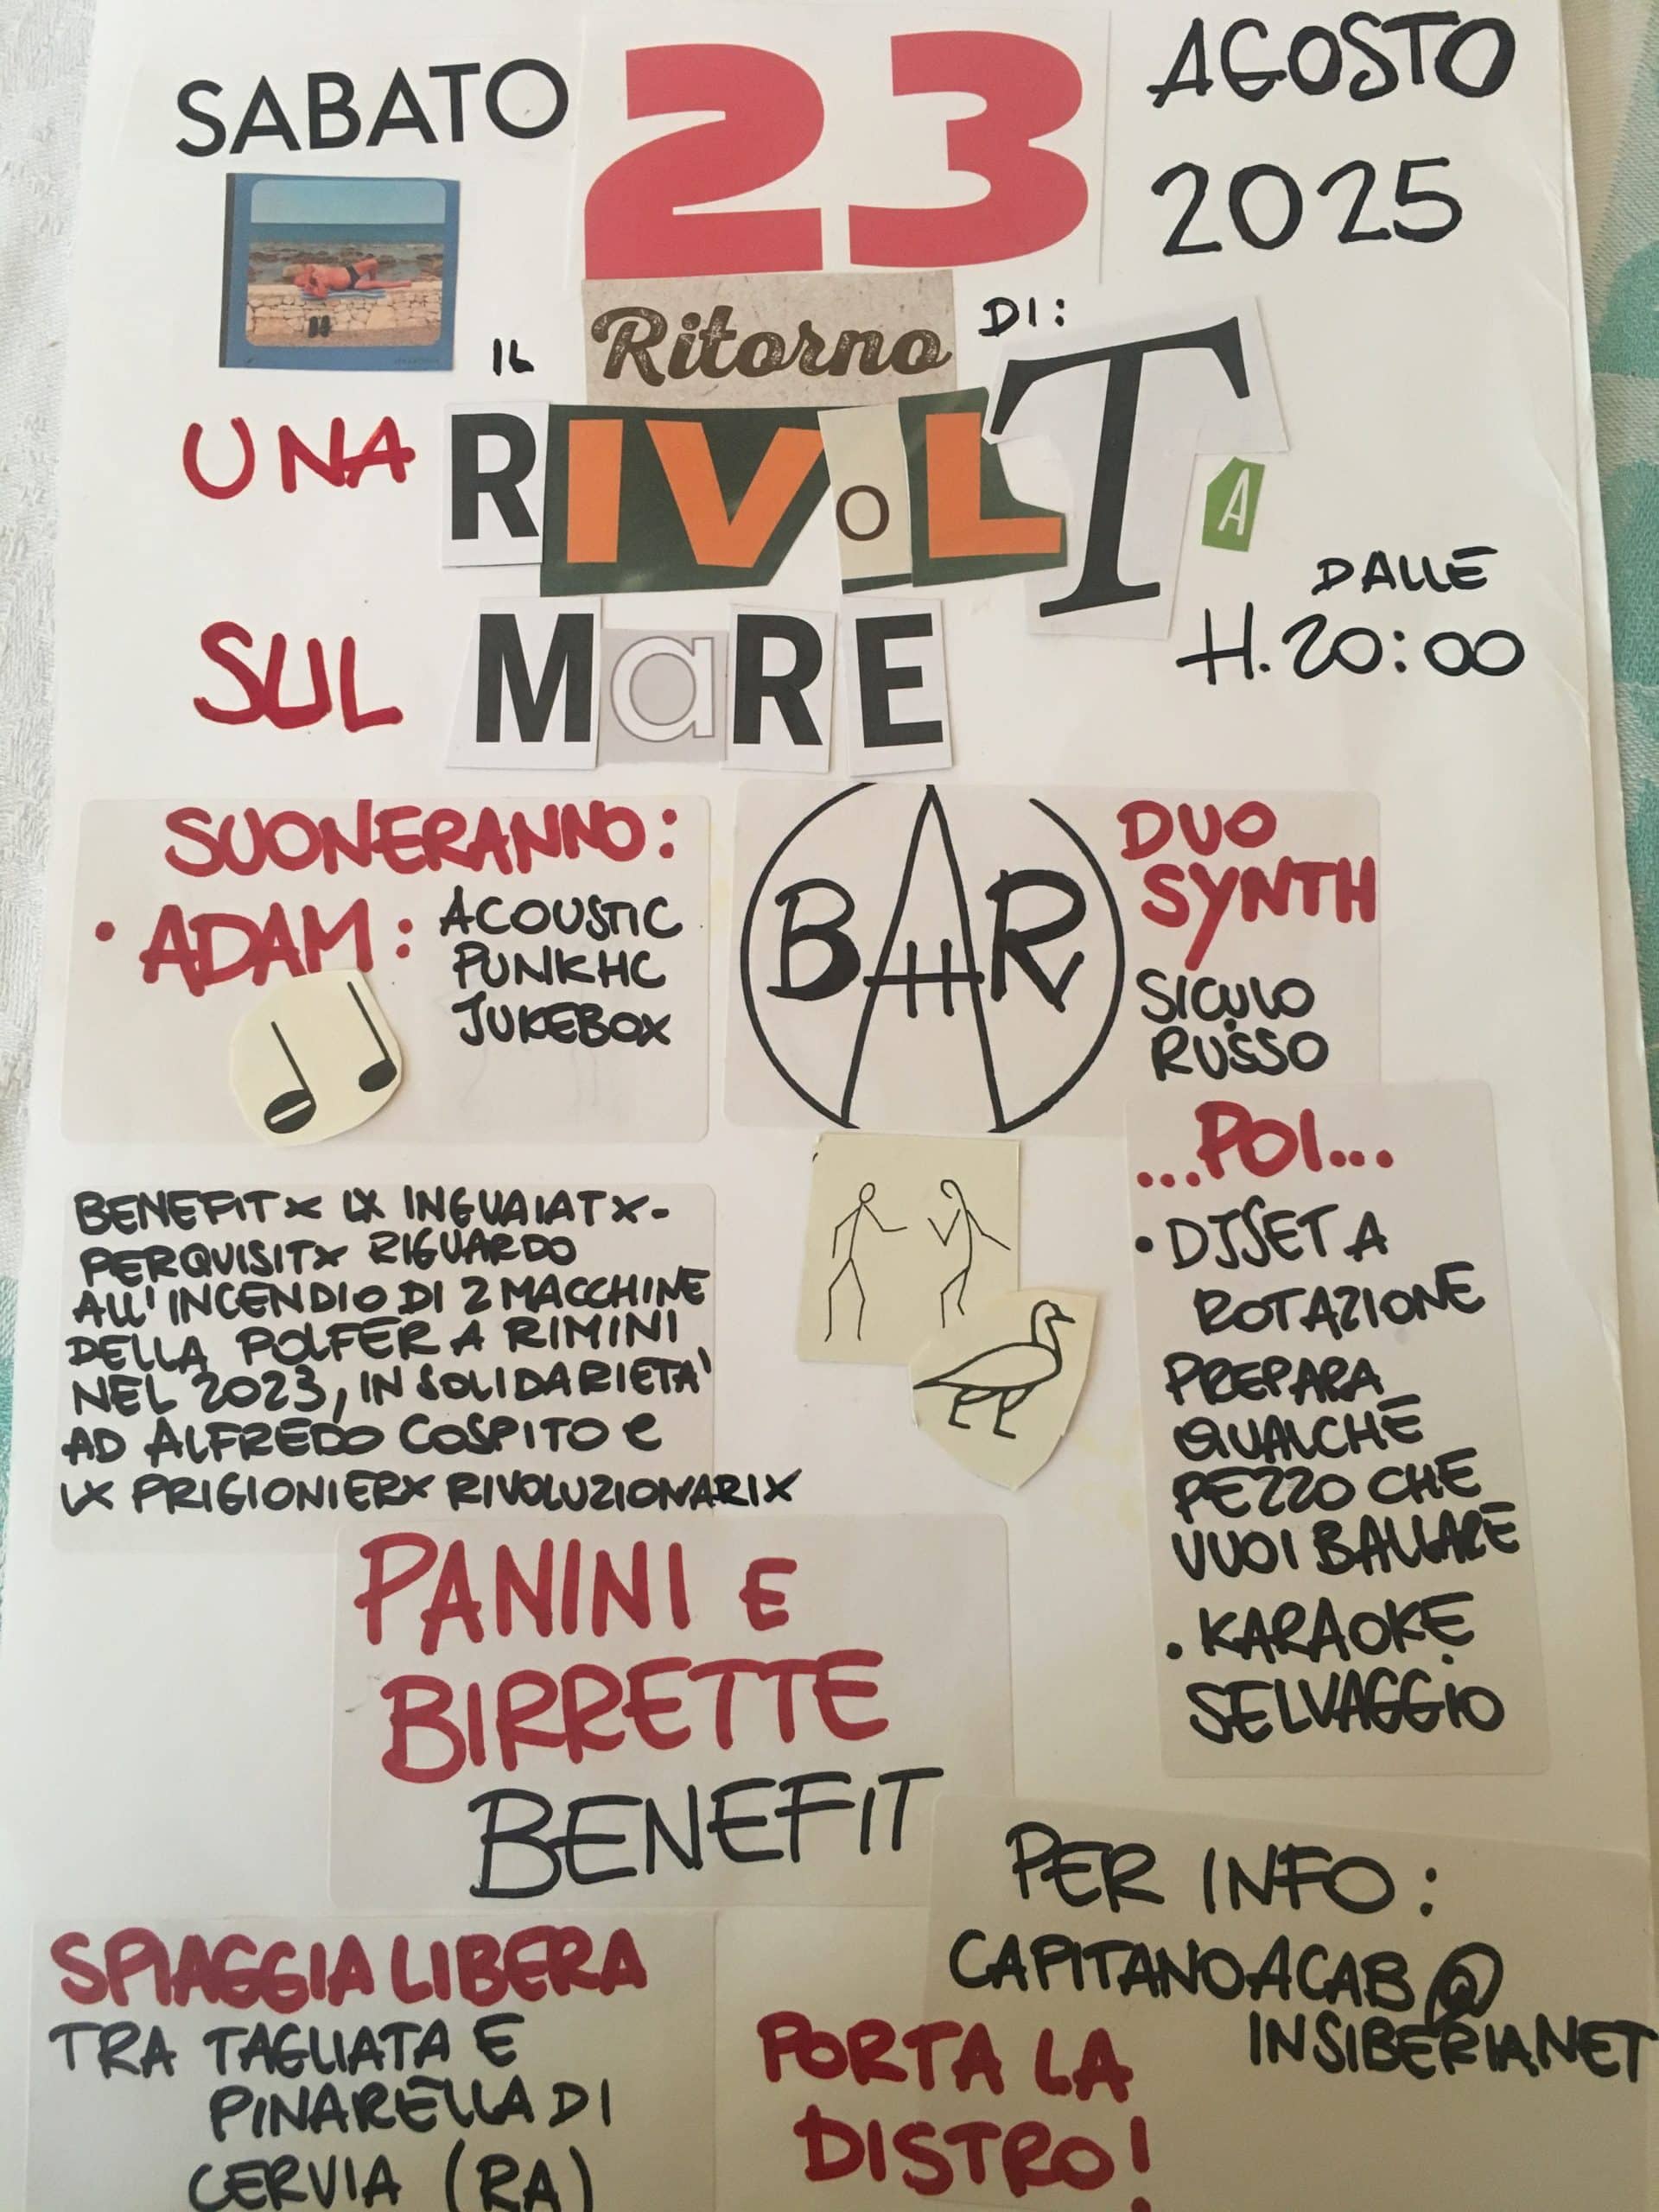 SABATO
23
AGOSTO
2025
IL Ritorno DI:
UNA RIVoLTA
SUL MaRE
DALLE
H.20:00
SUONERANNO:
• ADAM: ACOUSTIC
PUNKHC
JUKEBOX
BAR
DUO
SYNTH
SICULO
RUSSO
BENEFIT X LX INGUAIATX-
PERQUISITX RIGUARDO
ALL'INCENDIO DI 2 MACCHINE
DELLA POLFER A RIMINI
NEL 2023, IN SOLIDARIETA'
AD ALFREDO COSPITO e
LX PRIGIONIERX RIVOLUZIONARIX
...POI...
• DJSET A
ROTAZIONE
PREPARA
QUALCHE
PEZZO CHE
VUOI BALLARE
• KARAOKE
SELVAGGIO
PANINI E
BIRRETTE
BENEFIT
PER INFO:
CAPITANOACAB@
INSIBERIA.NET
SPIAGGIA LIBERA
TRA TAGLIATA E
PINARELLA DI
CERVIA (RA)
PORTA LA
DISTRO!